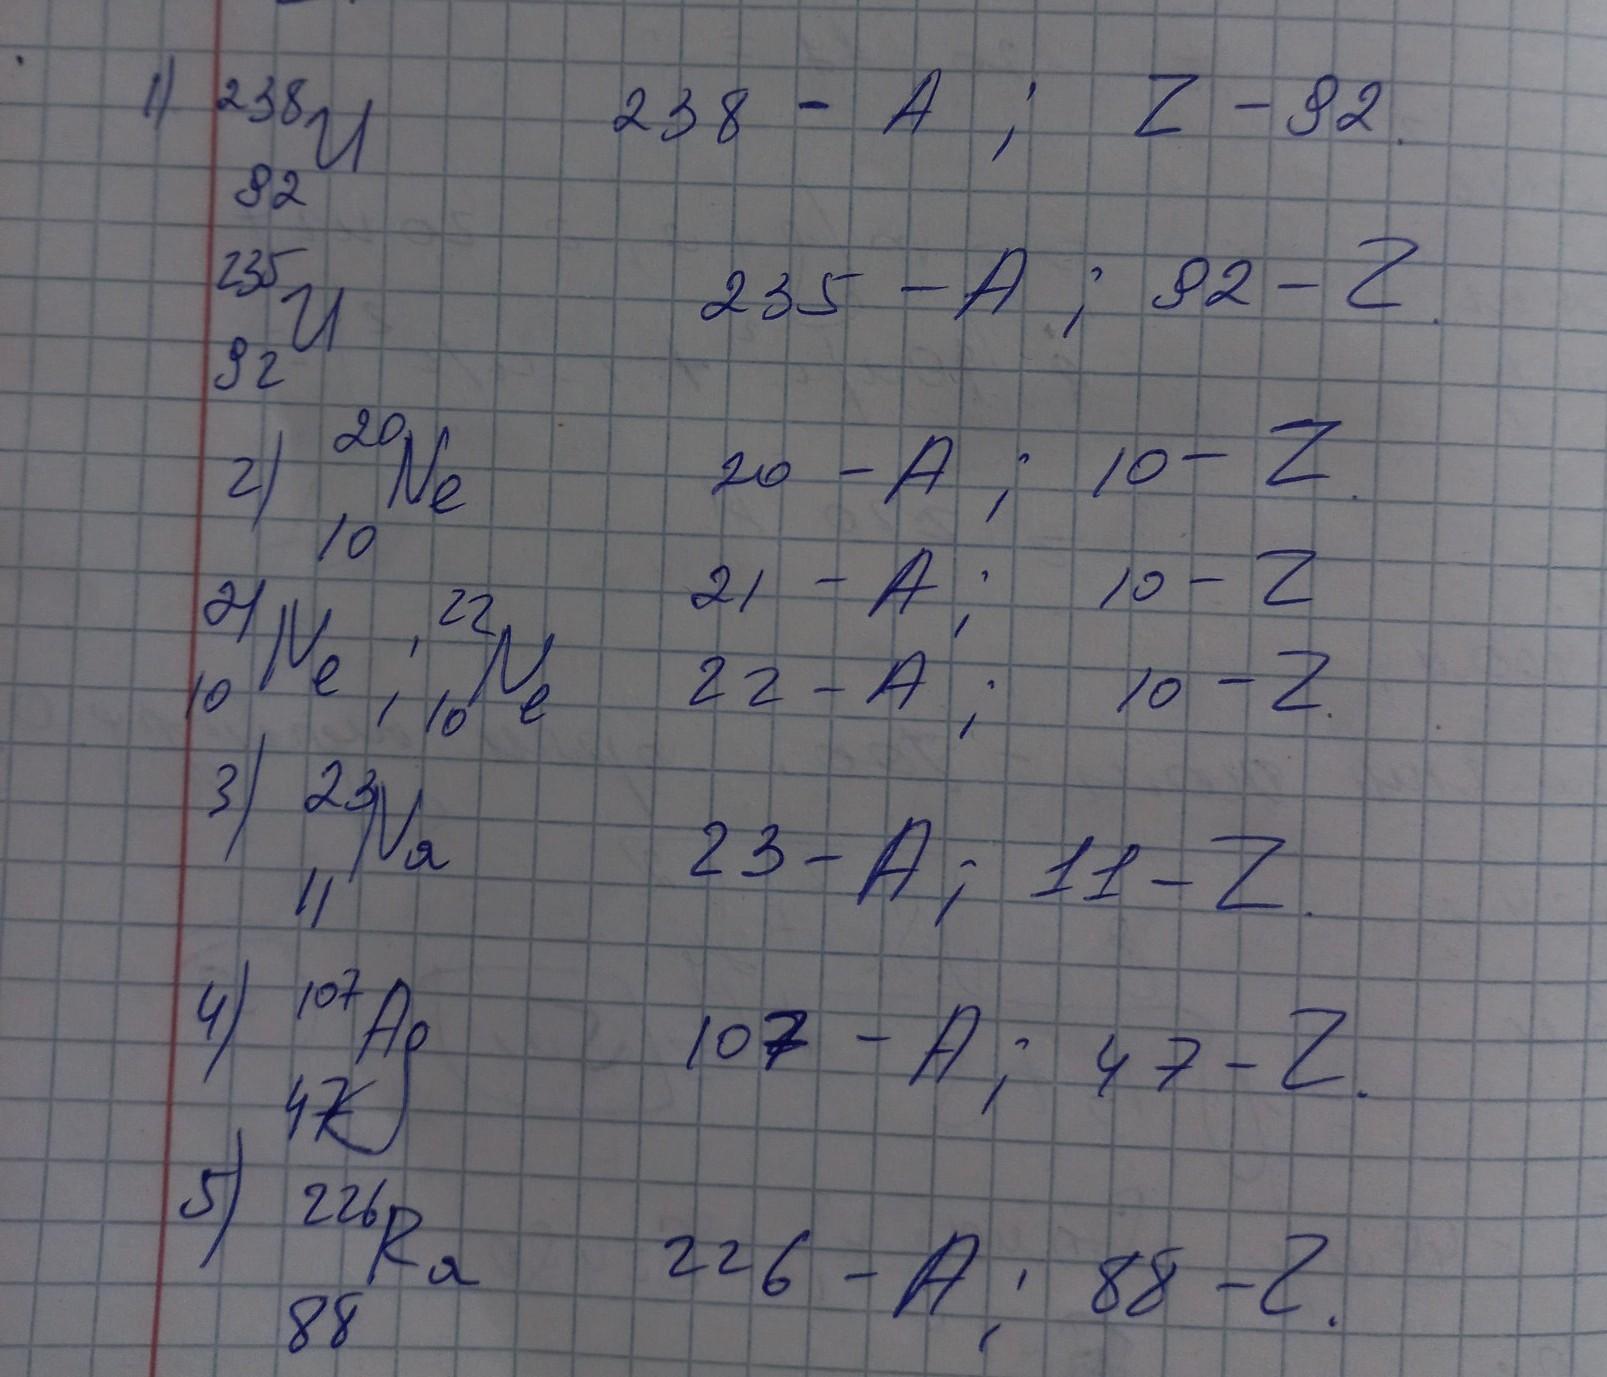 1) 238 U 238 - A ; Z - 92.
92
235 U 235 - A ; 92 - Z.
92
2) 20 Ne 20 - A ; 10 - Z.
10
21 Ne ; 22 Ne 21 - A ; 10 - Z
10 10 22 - A ; 10 - Z.
3) 23 Na 23 - A ; 11 - Z.
11
4) 107 Ag 107 - A ; 47 - Z.
47
5) 226 Ra 226 - A ; 88 - Z.
88